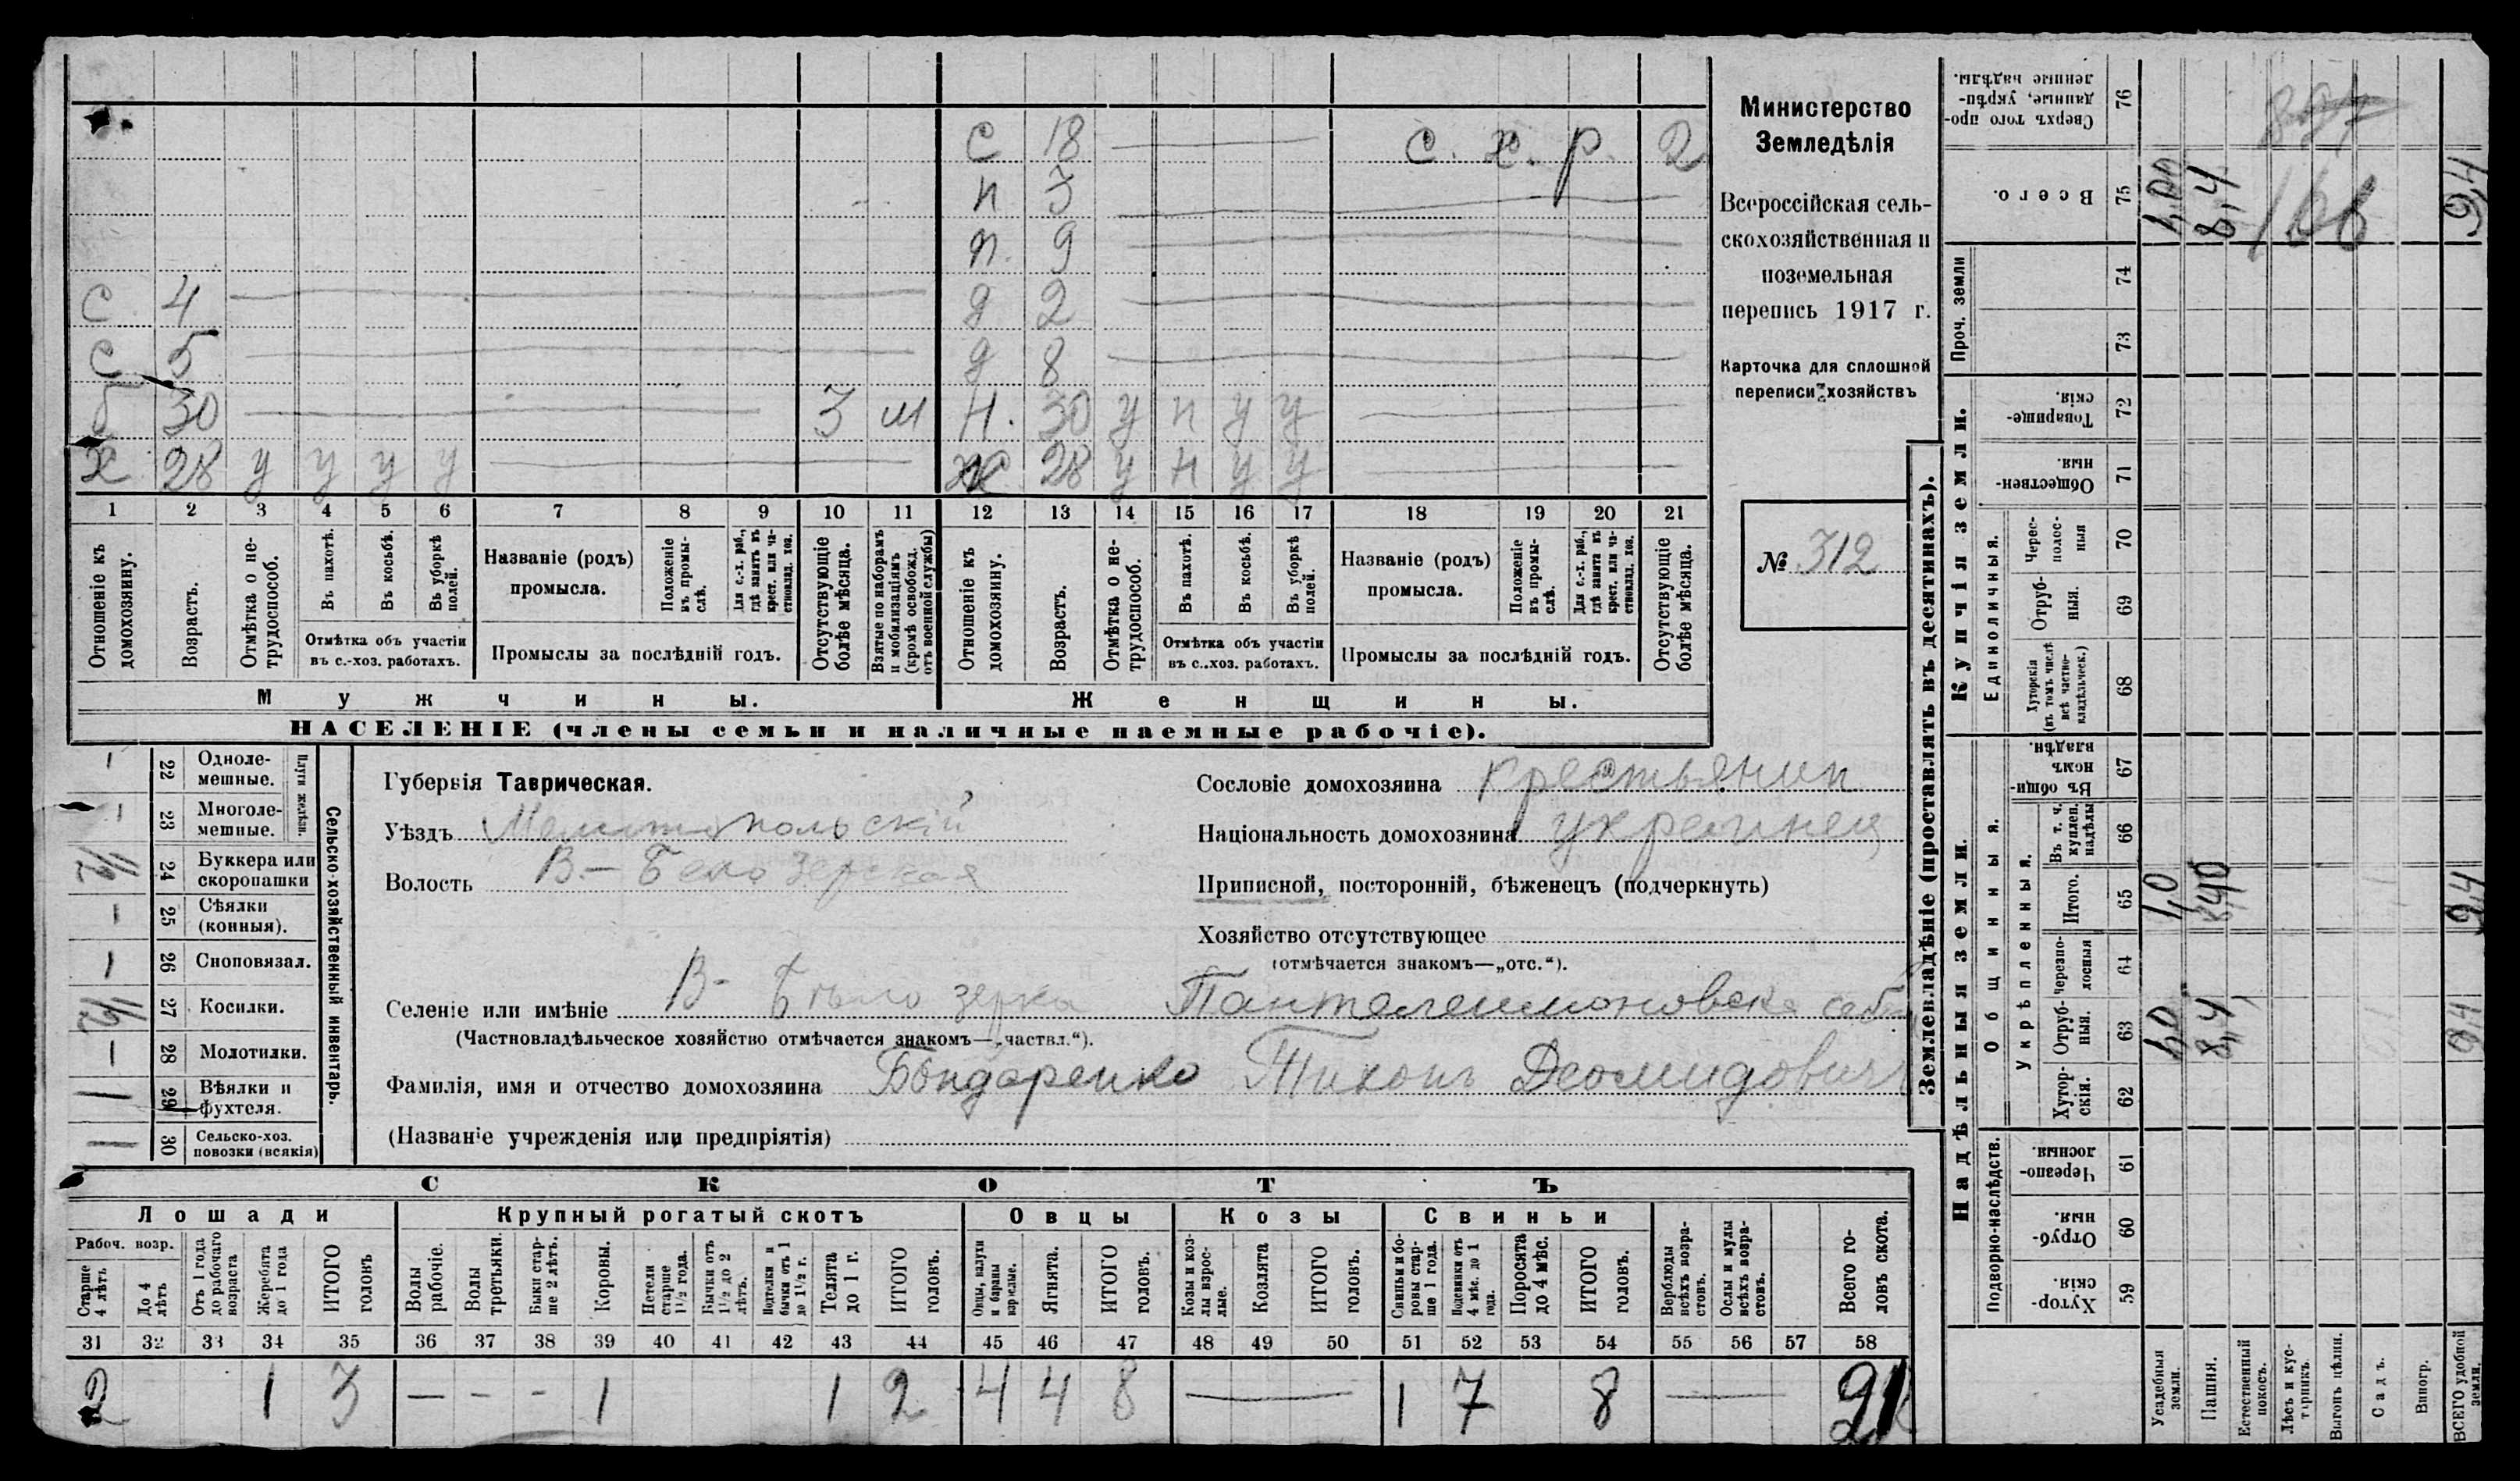 с 18 — с. х. р. 2
п 3 —
п. 9 —
с 4 — д 2 —
с 5 — д 8 —
б 30 — 3 м Н. 30 у п у у —
х 28 у у у у — ж 28 у н у у —
1 2 3 4 5 6 7 8 9 10 11 12 13 14 15 16 17 18 19 20 21
Отношеніе къ домохозяину.
Возрастъ.
Отмѣтка о не-
трудоспособ.
Въ пахотѣ.
Въ косьбѣ.
Въ уборкѣ полей.
Отмѣтка объ участіи
въ с.-хоз. работахъ.
Названіе (родъ)
промысла.
Положеніе въ промы-
слѣ.
Для с.-х. раб.,
гдѣ занятъ въ
крест. или ча-
стновлад. хоз.
Промыслы за послѣдній годъ.
Отсутствующіе
болѣе мѣсяца.
Взятые по наборамъ
и мобилизаціямъ
(кромѣ освобожд.
отъ военной службы)
Отношеніе къ домохозяину.
Возрастъ.
Отмѣтка о не-
трудоспособ.
Въ пахотѣ.
Въ косьбѣ.
Въ уборкѣ полей.
Отмѣтка объ участіи
въ с..хоз. работахъ.
Названіе (родъ)
промысла.
Положеніе въ промы-
слѣ.
Для с.-х. раб.,
гдѣ занята въ
крест. или ча-
стновлад. хоз.
Промыслы за послѣдній годъ.
Отсутствующіе
болѣе мѣсяца.
Мужчины. Женщины.
НАСЕЛЕНІЕ (члены семьи и наличные наемные рабочіе).
Министерство
Земледѣлія
Всероссійская сель-
скохозяйственная и
поземельная
перепись 1917 г.
Карточка для сплошной
переписи хозяйствъ
№ 312
— 22 Одноле-
мешные.
— 23 Многоле-
мешные.
Плуги желѣзн.
1/2 24 Буккера или
скоропашки
— 25 Сѣялки
(конныя).
— 26 Сноповязал.
1/2 27 Косилки.
— 28 Молотилки.
1 29 Вѣялки и
фухтеля.
1 30 Сельско-хоз.
повозки (всякія)
Сельско-хозяйственный инвентарь.
Губернія Таврическая.
Уѣздъ Мелитопольскій
Волость В— Белозерская
Селеніе или имѣніе В- Бѣлозерка Пантелеимоновск
(Частновладѣльческое хозяйство отмѣчается знакомъ—„частвл.“).
Фамилія, имя и отчество домохозяина Бондаренко Тихонъ Деомидовичъ
(Названіе учрежденія или предпріятія)
Сословіе домохозяина крестьянин
Національность домохозяина украинец
Приписной, посторонній, бѣженецъ (подчеркнуть)
Хозяйство отсутствующее
(отмѣчается знакомъ—„отс.“).
СКОТЪ
Лошади Крупный рогатый скотъ Овцы Козы Свиньи
Рабоч. возр.
Старше 4 лѣтъ
До 4 лѣтъ
Отъ 1 года
до рабочаго
возраста
Жеребята
до 1 года
ИТОГО
головъ
Волы рабочіе.
Волы третьяки.
Быки стар-
ше 2 лѣтъ.
Коровы.
Нетели
старше
1½ года.
Бычки отъ
1½ до 2
лѣтъ.
Подтелки и
бычки отъ 1
до 1½ г.
Телята
до 1 г.
ИТОГО
головъ.
Овцы, валухи
и бараны
взрослые.
Ягнята.
ИТОГО
головъ.
Козы и коз-
лы взрос-
лые.
Козлята
ИТОГО
головъ.
Свиньи и бо-
ровы стар-
ше 1 года.
Подсвинки отъ
4 мѣс. до 1
года.
Поросята
до 4 мѣс.
ИТОГО
головъ.
Верблюды
всѣхъ возра-
стовъ.
Ослы и мулы
всѣхъ возра-
стовъ.
Всего го-
ловъ скота.
31 32 33 34 35 36 37 38 39 40 41 42 43 44 45 46 47 48 49 50 51 52 53 54 55 56 57 58
2 1 3 — - - 1 1 2 4 4 8 — 1 7 8 — 21
Землевладѣніе (проставлять въ десятинахъ).
Купчія земли.
Надѣльныя земли.
Сверхъ того про-
данные, укрѣп-
ленные надѣлы. 76
Всего. 75 1,00 8,4 9,4
168
Проч. земли 74 73
Товарище-
скія. 72
Обществен-
ныя. 71
Единоличныя.
Черес-
полос-
ныя 70
Отруб-
ныя. 69
Хуторскія
(въ томъ числѣ
всѣ частно-
владѣльческ.) 68
Общинныя.
Въ общи-
номъ
владѣн. 67
Укрѣпленныя.
Въ т. ч.
куплен.
надѣлы 66
Итого. 65 1,0 8,40 9,4
Черезпо-
лосныя 64
Отруб-
ныя. 63 1,0 8,4 9,4
Хутор-
скія. 62
Подворно-наслѣдств.
Черезпо-
лосныя. 61
Отруб-
ныя. 60
Хутор-
скія. 59
Усадебныя
земли.
Пашня.
Естественный
покосъ.
Лѣсъ и кус-
тарникъ.
Выгонъ цѣлин.
Садъ.
Виногр.
ВСЕГО удобной
земли.